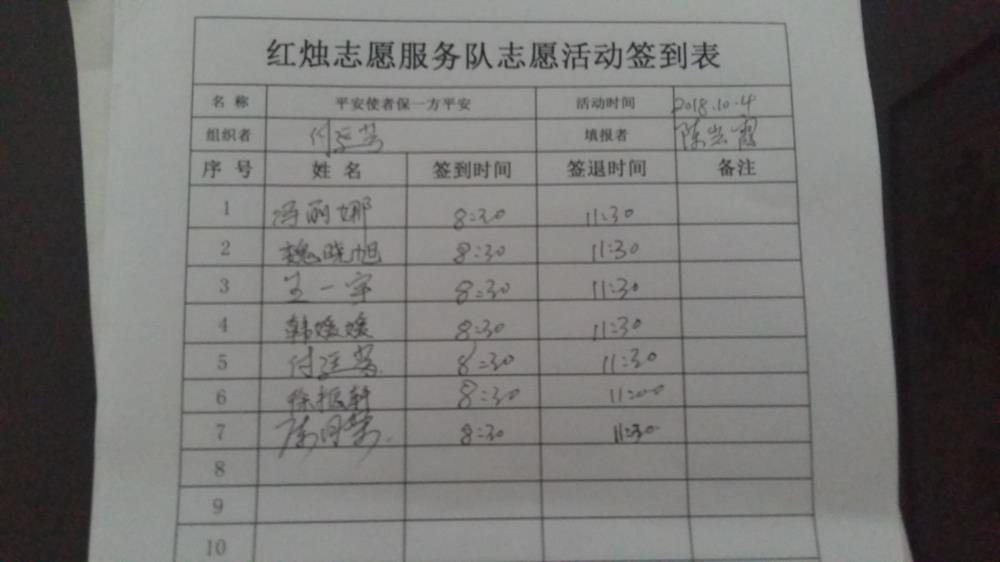 红烛志愿服务队志愿活动签到表
名 称 平安使者保一方平安 活动时间 2018.10.4
组织者 填报者
序 号 姓 名 签到时间 签退时间 备注
1 冯丽娜 8:30 11:30
2 魏晓旭 8:30 11:30
3 王一宇 8:30 11:30
4 韩媛媛 8:30 11:30
5 8:30 11:30
6 徐振轩 8:30 11:00
7 8:30 11:30
8
9
10